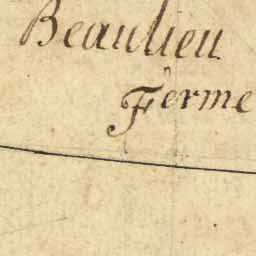 Beaulieu
Ferme